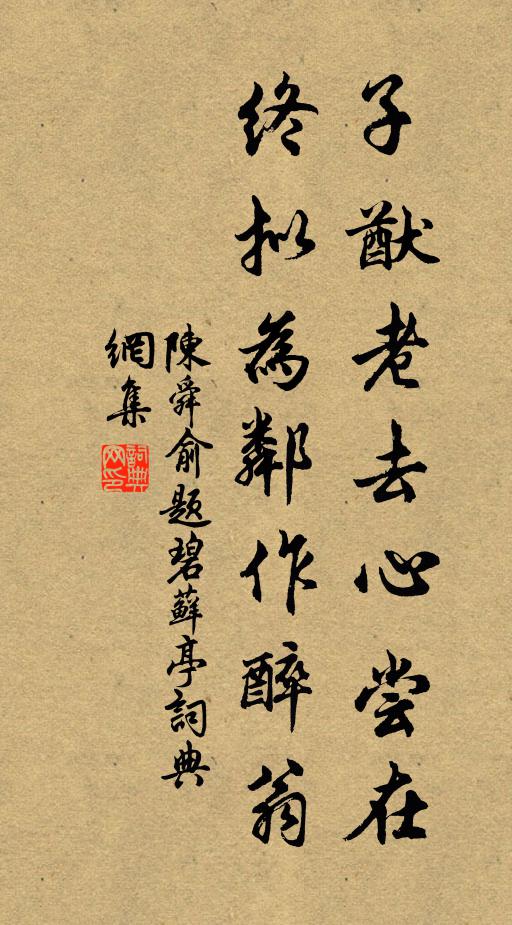 子猷老去心尝在
终拟為鄰作醉翁
陳舜俞题碧蘚亭詞典
網集
詞典
网印